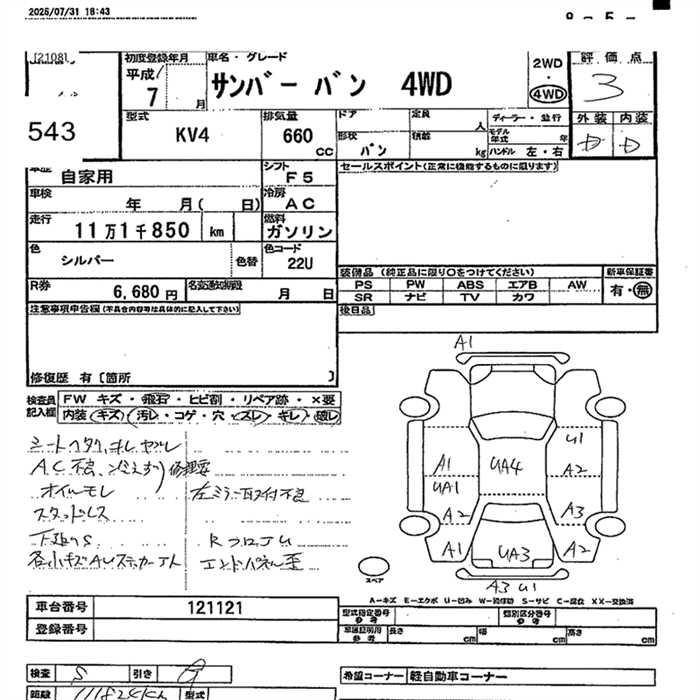 2025/07/31 18:43
[2108]
初度登録年月 車名・グレード 2WD 評価点
平成 7 月 サンバー バン 4WD ・ 4WD 3
543
型式 KV4 排気量 660 cc ドア 定員 人 ディーラー・並行 外装 内装
形状 バン 積載 kg モデル年式 年 ハンドル 左・右 D D
車歴 自家用 シフト F5 セールスポイント(正常に機能するものに限ります)
車検 年 月( 日) 冷房 AC
走行 11万1千850 km 燃料 ガソリン
色 シルバー 色替 色コード 22U
装備品 (純正品に限り○をつけてください) 新車保証書
PS PW ABS エアB AW 有・無
SR ナビ TV カワ
R券 6,680 円 名変通知期限 月 日
注意事項申告欄(不具合内容等は具体的に記入して下さい) 後日品
修復歴 有〔箇所 〕
検査員記入欄 FW キズ・飛石・ヒビ割・リペア跡・×要
内装 キズ 汚レ・コゲ・穴・スレ・キレ・破レ
シートヘタリ、キレ、ヤブレ
AC不良、冷えず)修理要
オイルモレ 左ミラー取付不良
スタッドレス
下廻りS RフロUU
各小キズAUステッカー
エンドパネル歪
A1
U1
A1 UA4 A2
UA1
A2 A3
A1 UA3 A2
スペア
A3 U1
A-キズ E-エクボ U-凹み W-補修跡 S-サビ C-腐食 XX-交換済
車台番号 121121
登録番号
型式指定番号 参考 類別区分番号 参考
車庫証明用 参考 長さ cm 幅 cm 高さ cm
検査 S 引き
距離 111824km 型式
希望コーナー 軽自動車コーナー